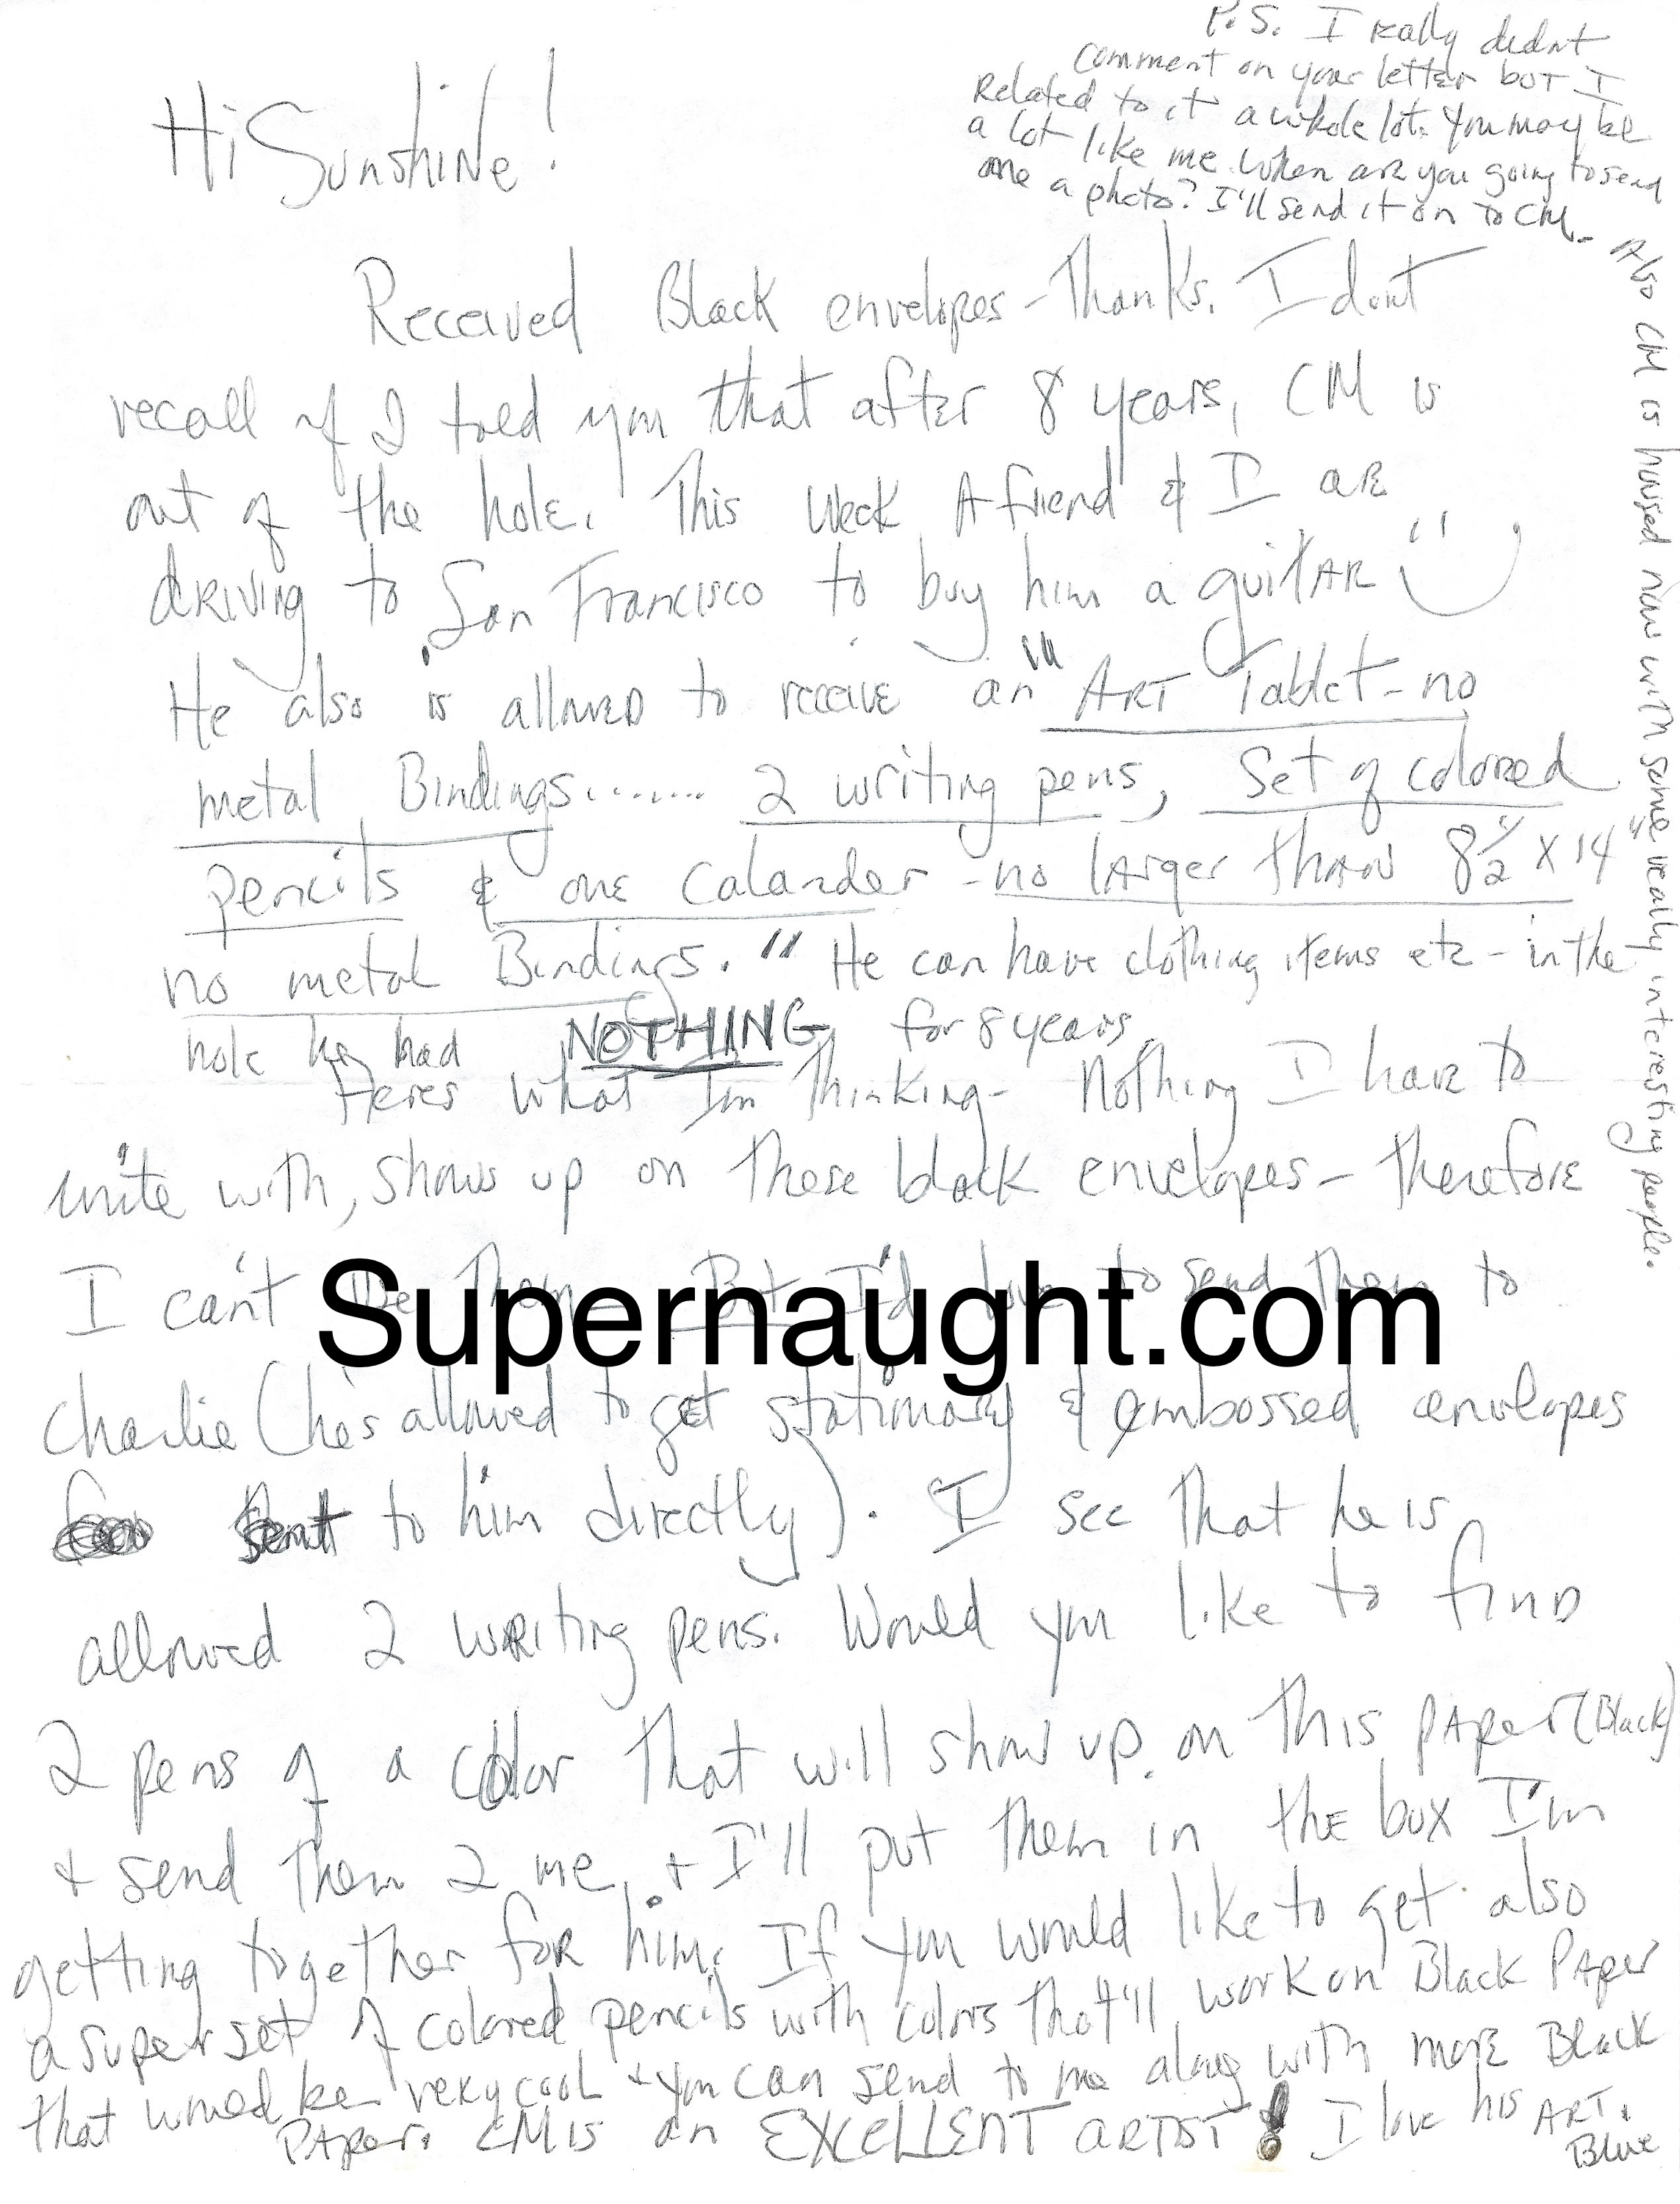 Hi Sunshine!
Received Black envelopes - Thanks. I dont
recall if I told you that after 8 years, CM is
out of the hole. This week A friend & I are
driving to San Francisco to buy him a guitar
He also is allowed to receive an "ART Tablet - no
metal Bindings....... 2 writing pens, Set of colored
pencils & one Calander - no larger than 8 1/2" x 14"
no metal Bindings." He can have clothing items etc - in the
hole he had NOTHING for 8 years
Heres what Im Thinking - Nothing I have to
write with, shows up on these black envelopes - therefore
I can't use them. But I'd love to send them to
Charlie (he's allowed to get stationary & embossed envelopes
sent to him directly). I see that he is
allowed 2 writing pens. Would you like to find
2 pens of a color that will show up on this paper (Black)
+ send them 2 me, + I'll put them in the box I'm
getting together for him. If you would like to get also
a super set of colored pencils with colors that'll work on Black Paper
that would be very cool + you can send to me along with more Black
Paper. CM is an EXCELLENT ARTIST! I love his ART.
Blue
P.S. I really didnt
comment on your letter but I
Related to it a whole lot. You may be
a lot like me. When are you going to send
me a photo? I'll send it on to CM.
Also CM is housed now with some really interesting people.
Supernaught.com